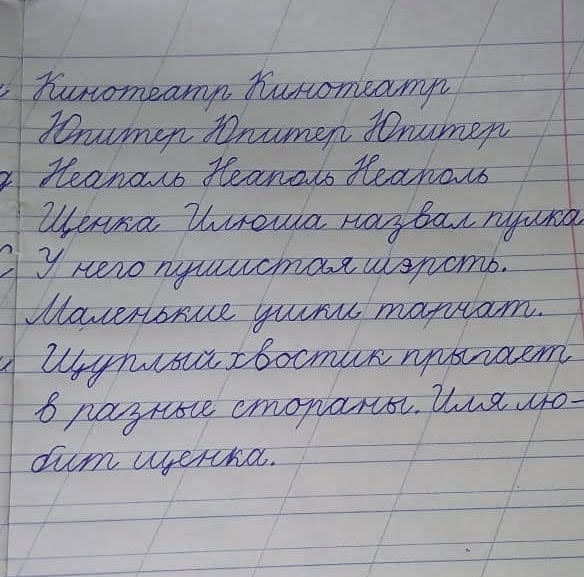 Кинотеатр Кинотеатр
Юпитер Юпитер Юпитер
Неаполь Неаполь Неаполь
Щенка Илюша назвал пулка
У него пушистая шэрсть.
Маленькие ушки тарчат.
Щуплый хвостик прыгает
в разные стораны. Иля лю-
бит щенка.